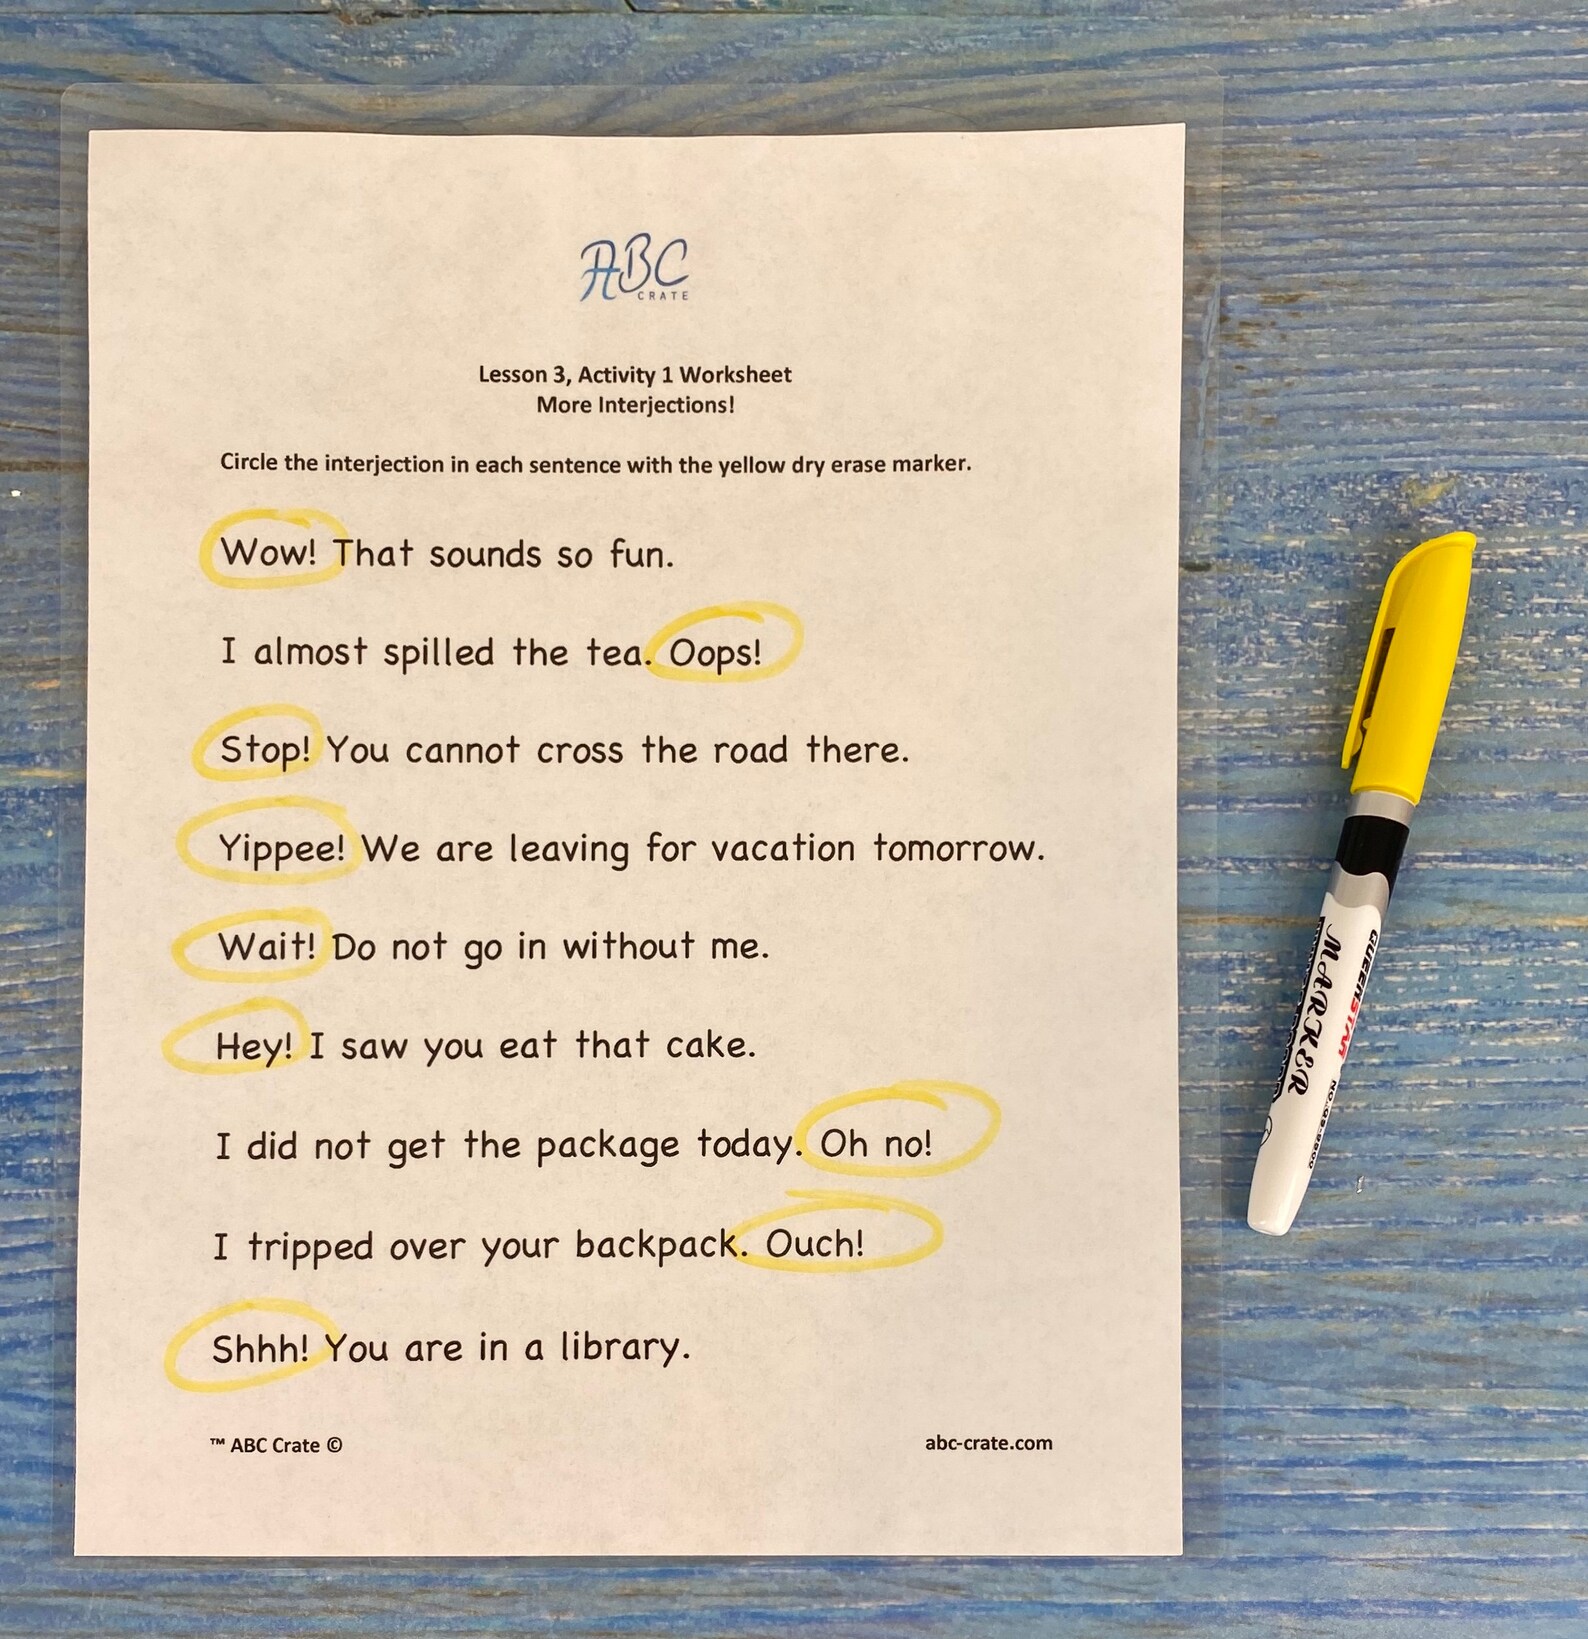 ABC
CRATE
Lesson 3, Activity 1 Worksheet
More Interjections!
Circle the interjection in each sentence with the yellow dry erase marker.
Wow! That sounds so fun.
I almost spilled the tea. Oops!
Stop! You cannot cross the road there.
Yippee! We are leaving for vacation tomorrow.
Wait! Do not go in without me.
Hey! I saw you eat that cake.
I did not get the package today. Oh no!
I tripped over your backpack. Ouch!
Shhh! You are in a library.
™ ABC Crate ©
abc-crate.com
QUEENSTAR
MARKER